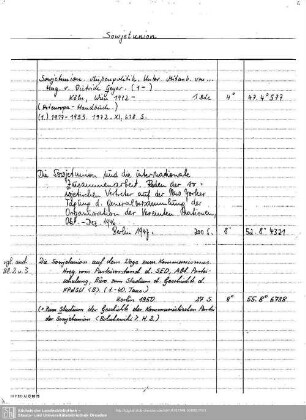 Sowjetunion
Sowjetunion. Außenpolitik. Unter Mitarb. von ...
Hrsg. v. Dietrich Geyer. (1-)
Köln, Wien 1972- 4° 47.4°577
(Osteuropa-Handbuch.)
(1.) 1917-1955. 1972. XI,
Die Sowjetunion und die internationale
Zusammenarbeit. Reden der so-
wjetischen Vertreter auf der New Yorker
Tagung d. Generalversammlung der
Organisation der Vereinten Nationen,
Okt.-Dez. 1946
Berlin 1947. 200 S. 8° 52.8°4321
vgl. auch Die Sowjetunion auf dem Wege zum Kommunismus.
Hrsg. vom Parteivorstand d. SED, Abt. Partei-
schulung, Büro zum Studium d. Geschichte d.
KPdSU (B).
Berlin 1950. 8° 55.8°6788
(= Zum Studium der Geschichte der Kommunistischen Partei
der Sowjetunion (Bolschewiki). H. 2.)